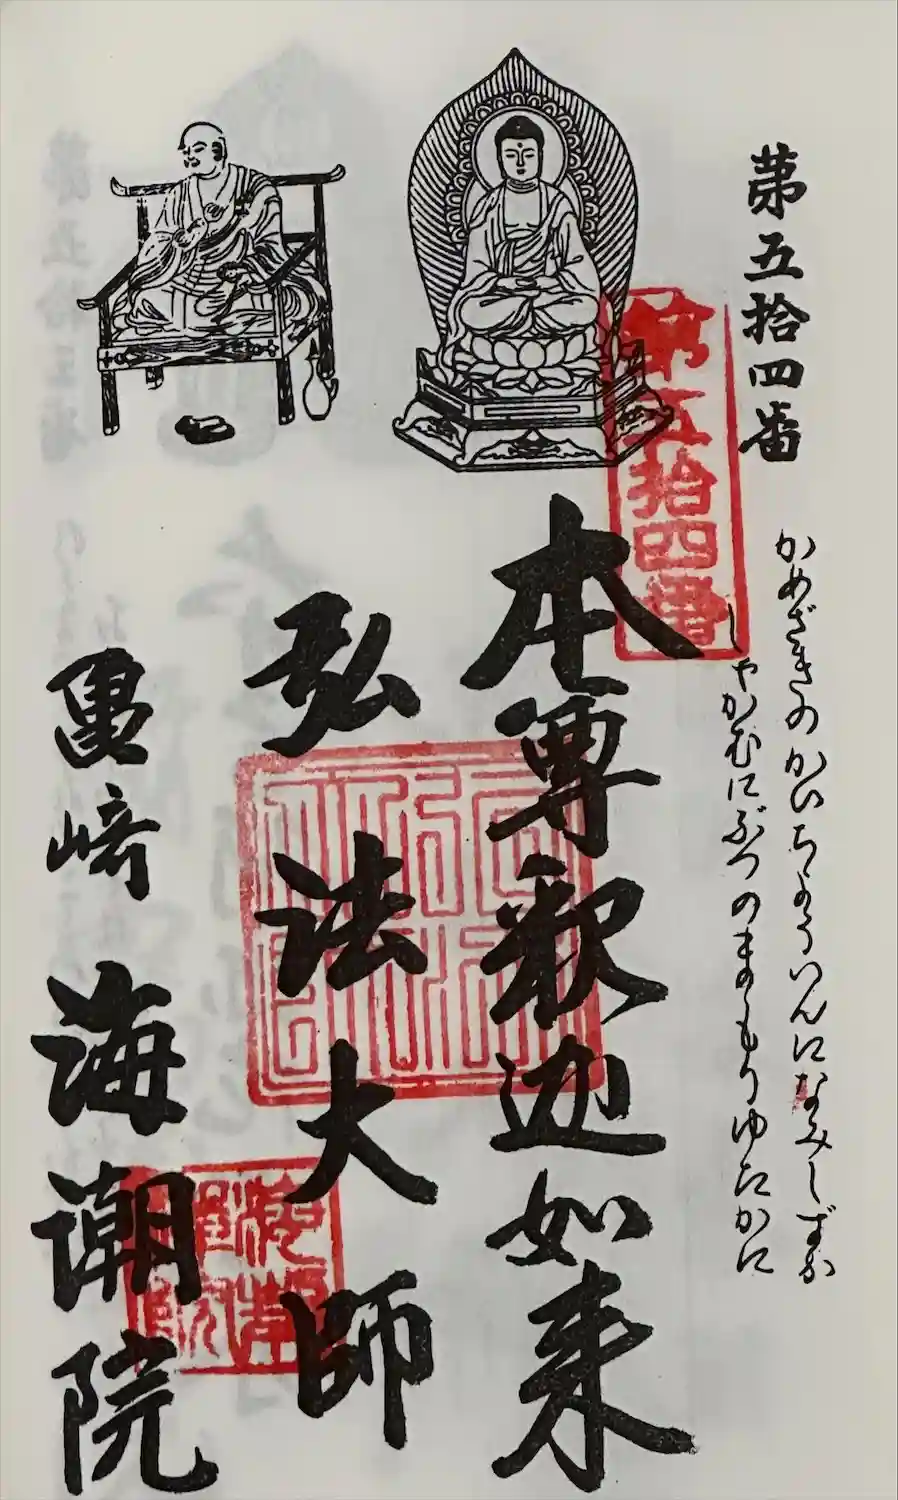 第五拾四番
かめざきのかいちょういんになみしずか
しゃかむにぶつのまもりゆたかに
第五拾四番
本尊釈迦如来
弘法大師
亀崎 海潮院